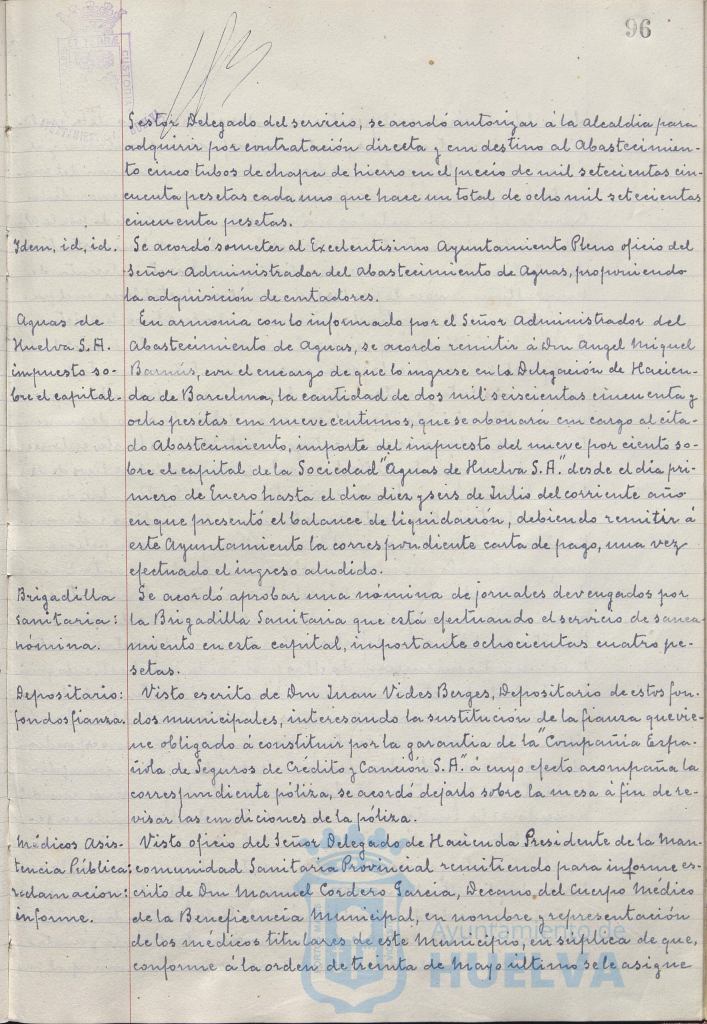 96
Gestor Delegado del servicio, se acordó autorizar á la Alcaldia para
adquirir por contratación directa y con destino al Abastecimien-
to cinco tubos de chapa de hierro en el precio de mil setecientas cin-
cuenta pesetas cada uno que hace un total de ocho mil setecientas
cincuenta pesetas.
Idem, id, id. Se acordó someter al Excelentisimo Ayuntamiento Pleno oficio del
Señor Administrador del Abastecimiento de Aguas, proponiendo
la adquisición de contadores.
Aguas de En armonia con lo informado por el Señor Administrador del
Huelva S.A. Abastecimiento de Aguas, se acordó remitir á Don Angel Miguel
impuesto so- Barnús, con el encargo de que lo ingrese en la Delegación de Hacien-
bre el capital. da de Barcelona, la cantidad de dos mil seiscientas cincuenta y
ocho pesetas con nueve centimos, que se abonará con cargo al cita-
do Abastecimiento, importe del impuesto del nueve por ciento so-
bre el capital de la Sociedad "Aguas de Huelva S.A." desde el dia pri-
mero de Enero hasta el dia dies y seis de Julio del corriente año
en que presentó el balance de liquidación, debiendo remitir á
este Ayuntamiento la correspondiente carta de pago, una vez
efectuado el ingreso aludido.
Brigadilla Se acordó aprobar una nómina de jornales devengados por
sanitaria: la Brigadilla Sanitaria que está efectuando el servicio de sanea-
nómina. miento en esta capital, importante ochocientas cuatro pe-
setas.
Depositario: Visto escrito de Don Juan Vides Berges, Depositario de estos fon-
fondos fianza. dos municipales, interesando la sustitución de la fianza que vie-
ne obligado á constituir por la garantia de la "Compañia Espa-
ñola de Seguros de Crédito y Caución S.A." á cuyo efecto acompaña la
correspondiente póliza, se acordó dejarlo sobre la mesa á fin de re-
visar las condiciones de la póliza.
Médicos Asis- Visto oficio del Señor Delegado de Hacienda Presidente de la Man-
tencia Pública: comunidad Sanitaria Provincial remitiendo para informe es-
reclamación: crito de Don Manuel Cordero Garcia, Decano del Cuerpo Médico
informe. de la Beneficencia Municipal, en nombre y representación
de los médicos titulares de este Municipio, en súplica de que,
conforme á la orden de treinta de Mayo ultimo se le asigne
Ayuntamiento de
HUELVA